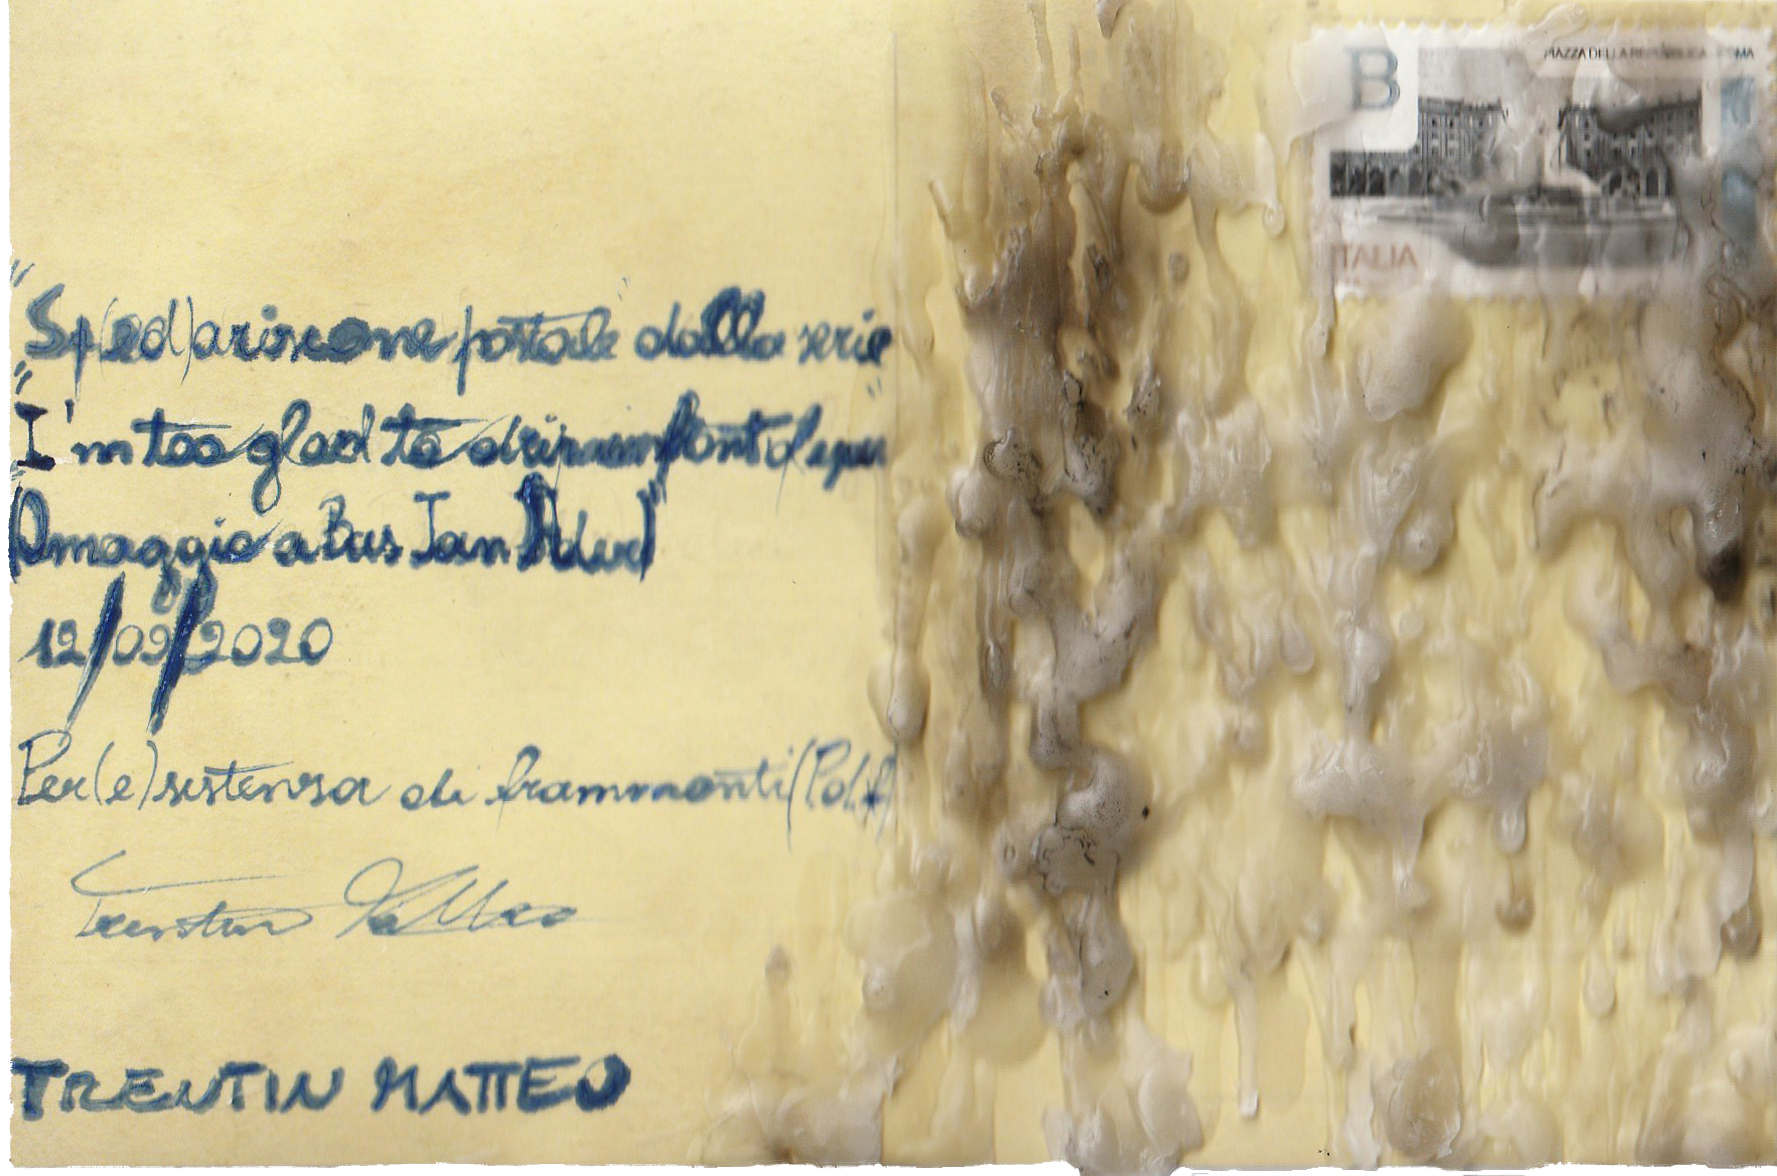 "Sp(ed)arizione postale" dalla serie
"I'm too glad to
(Omaggio a Bas Jan Ader)"
12/09/2020
Per(e)sistenza di frammenti (Pdf)
Trentin Matteo
TRENTIN MATTEO
B
PIAZZA DELLA REPUBBLICA ROMA
ITALIA